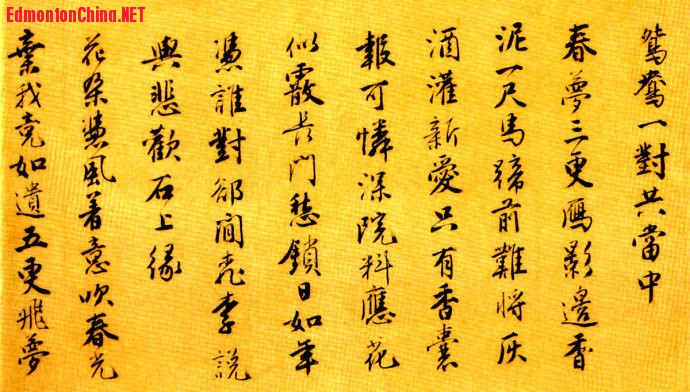 EdmontonChina.NET
鴛鴦一對共當中
春夢三更鴈影邊香
泥一尺馬蹄前難將灰
酒灌新愛只有香囊
報可憐深院料應花
似霰長門愁鎖日如年
憑誰對却閒花李說
與悲歡石上緣
花朶憑風着意吹春光
棄我竟如遺五更飛夢